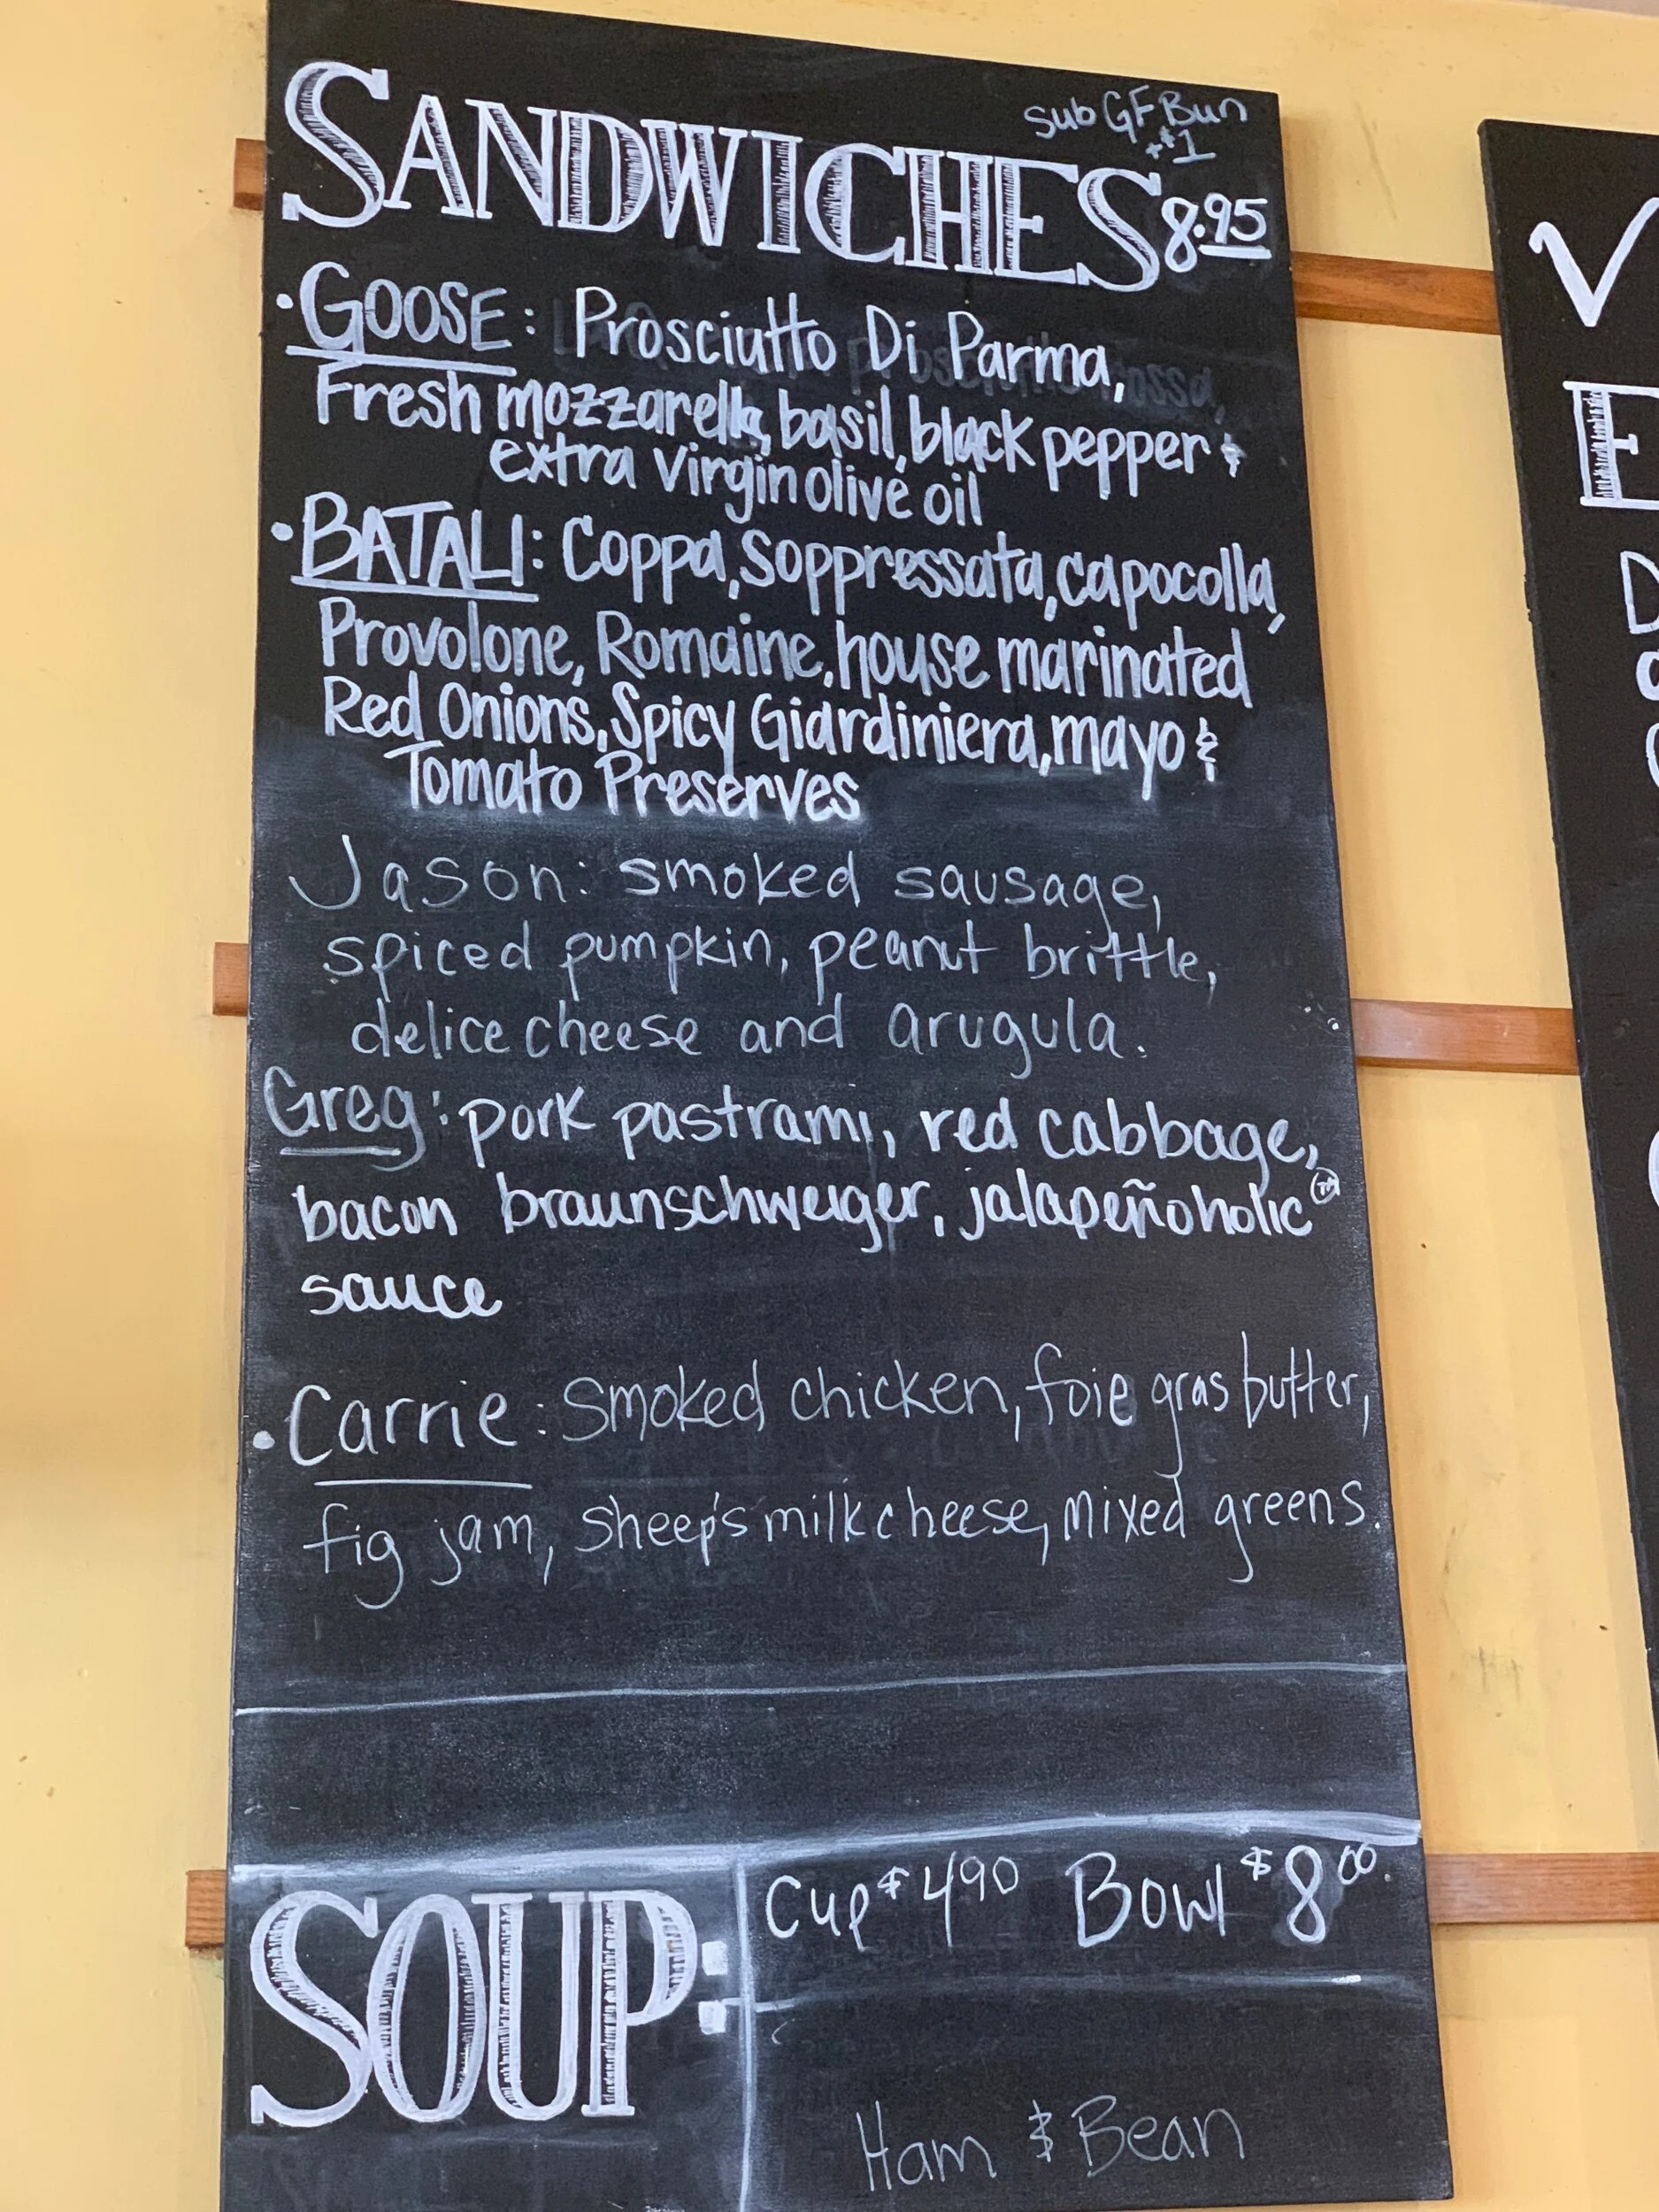 sub GF Bun
+$1
SANDWICHES 8.95
• GOOSE: Prosciutto Di Parma,
Fresh mozzarella, basil, black pepper &
extra virgin olive oil
• BATALI: Coppa, Soppressata, capocolla,
Provolone, Romaine, house marinated
Red Onions, Spicy Giardiniera, mayo &
Tomato Preserves
Jason: smoked sausage,
spiced pumpkin, peanut brittle,
delice cheese and arugula.
Greg: pork pastrami, red cabbage,
bacon braunschweiger, jalapeñoholic™
sauce
• Carrie: Smoked chicken, foie gras butter,
fig jam, sheep's milk cheese, mixed greens.
SOUP:
Cup $4.90 Bowl $8.00
Ham & Bean